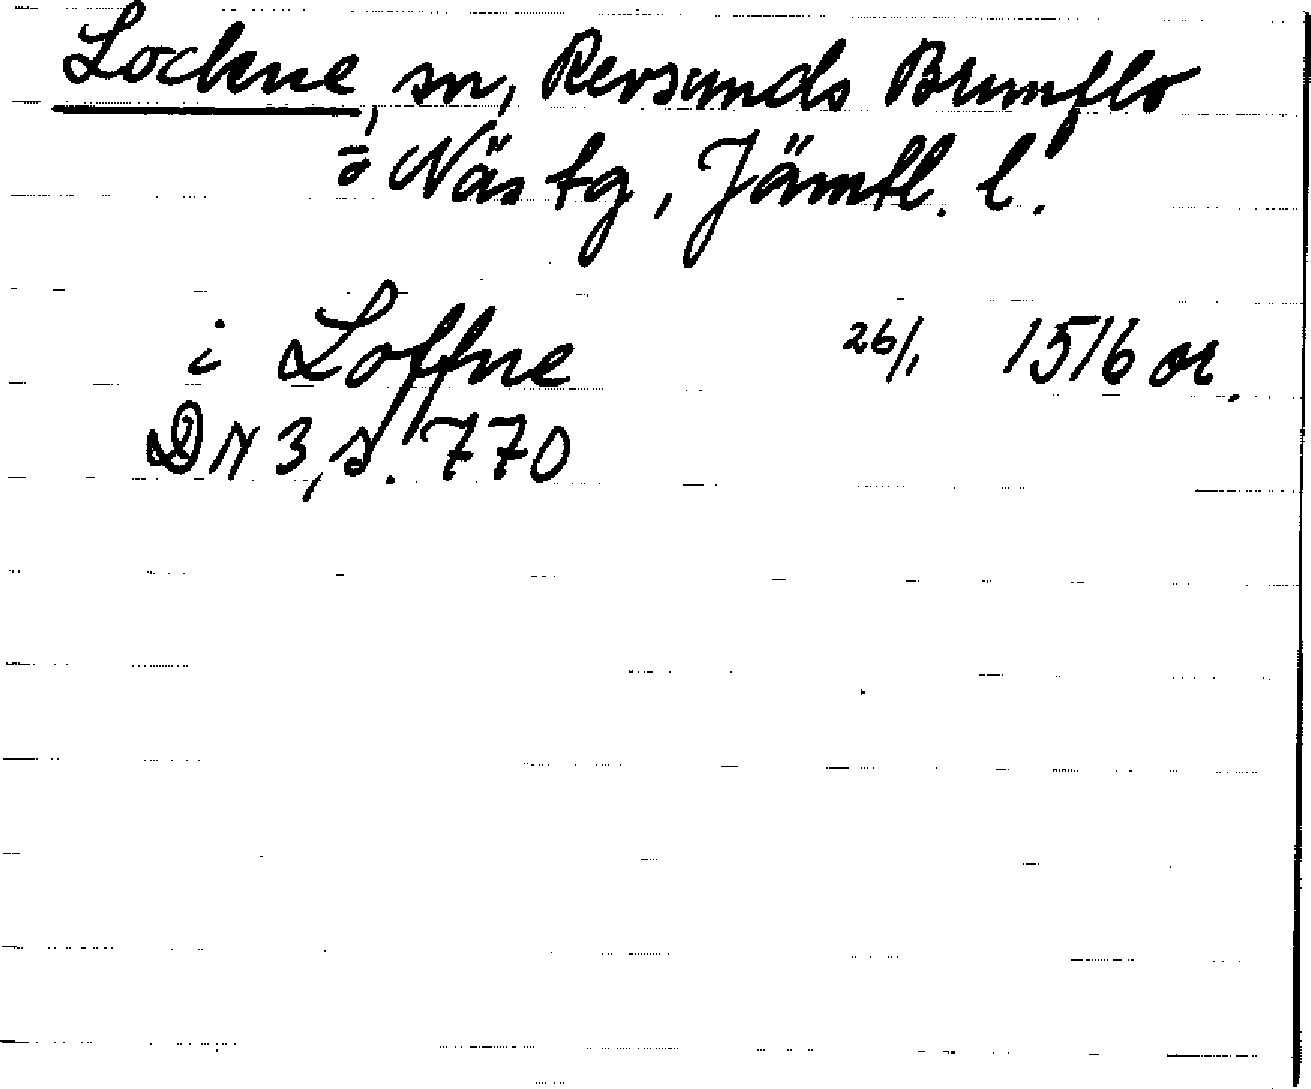 Lockne, sn, Revsunds Brunflo
o Näs tg, Jämtl. l.
i Loffne 26/1 1516 or.
DN 3, s. 770